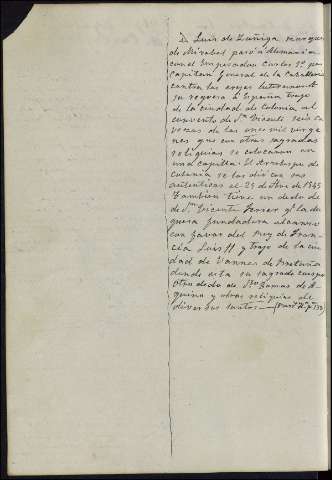 Dn Luis de Zuñiga marques
de Mirabel pasó a Alemania
con el Emperador Carlos 5º por
Capitan General de la Caballeria
contra los erejes luteranos. A
su regreso á España trajo
de la ciudad de Colonia, al
convento de Sn Vicente seis ca
vezas de las once mil virge
nes que con otras sagradas
reliquias se colocaron en
una capilla. El Arzobispo de
Colonia se las dio con sus
autenticas el 29 de 1545
Tambien tiene un dedo de
de Sn Vicente Ferrer qe la du
quesa fundadora alcanzo
con favor del Rey de Fran
cia Luis 11 y trajo de la ciu
dad de Vannes de Bretaña
donde esta su sagrado cuerpo
Otro dedo de Sto Tomas de A
quino y otras reliquias de
diversos santos —